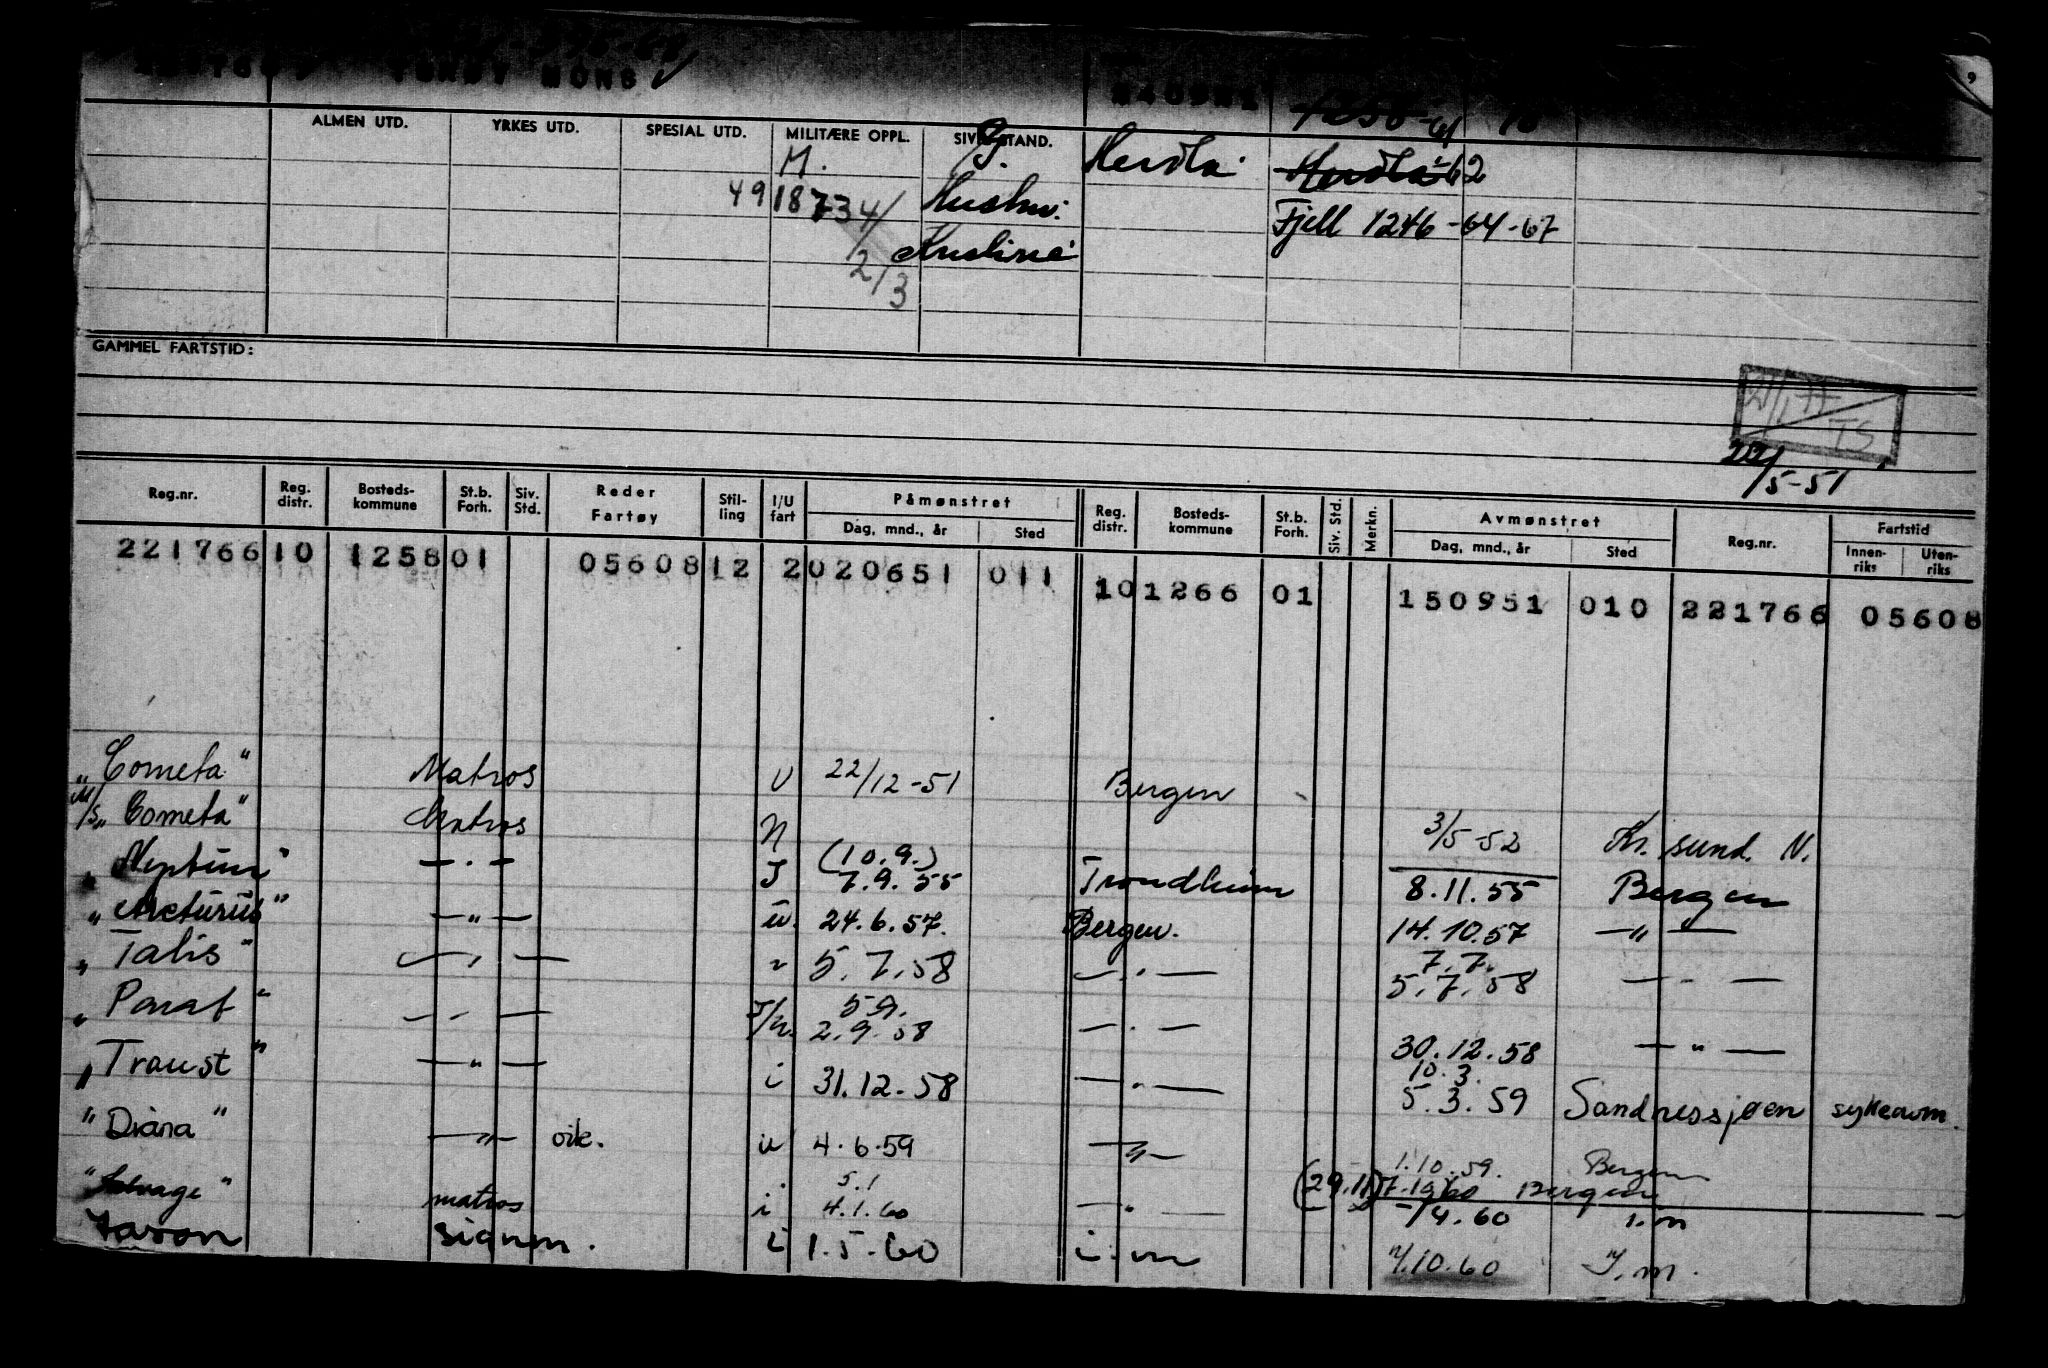 MONS
ALMEN UTD. YRKES UTD. SPESIAL UTD. MILITÆRE OPPL. SIV. STAND.
M. G. Herdla 62
4918734/ Hushm. Fjell 1246-64-67
2/3
GAMMEL FARTSTID:
TS
22/5-51
Reg.nr. Reg. distr. Bosteds-kommune St.b. Forh. Siv. Std. Reder Fartøy Stil-ling I/U fart Påmønstret Dag, mnd., år Sted Reg. distr. Bosteds-kommune St.b. Forh. Siv. Std. Merkn. Avmønstret Dag, mnd., år Sted Reg.nr. Fartstid Innen-riks Uten-riks
221766 10 1258 01 05608 12 2 020651 011 10 1266 01 150951 010 221766 05608
"Cometa" Matros U 22/12-51 Bergen
M/S "Cometa" Matros 3/5-52 Kr. sund. N.
"Neptun" — . — (10.9.) 7.9.55 Trondheim 8.11.55 Bergen
"Arcturus" — " — u. 24.6.57. Bergen. 14.10.57 — " —
"Talis" — " — 5.7.58 — . — 7.7. 5.7.58 — . —
— " — 5.9. 2.9.58 — . — 30.12.58 — " —
"Traust" — " — i 31.12.58 — . — 10.3. 5.3.59 Sandnessjøen sykeavm.
"Diana" — " — oik. u 4.6.59 — " — 1.10.59. Bergen
(29.11) Bergen
"Salvage" matros i 5.1 4.1.60 — . — /4.60 i.m
Jason signm. i 1.5.60 i.m 7.10.60 I.m.